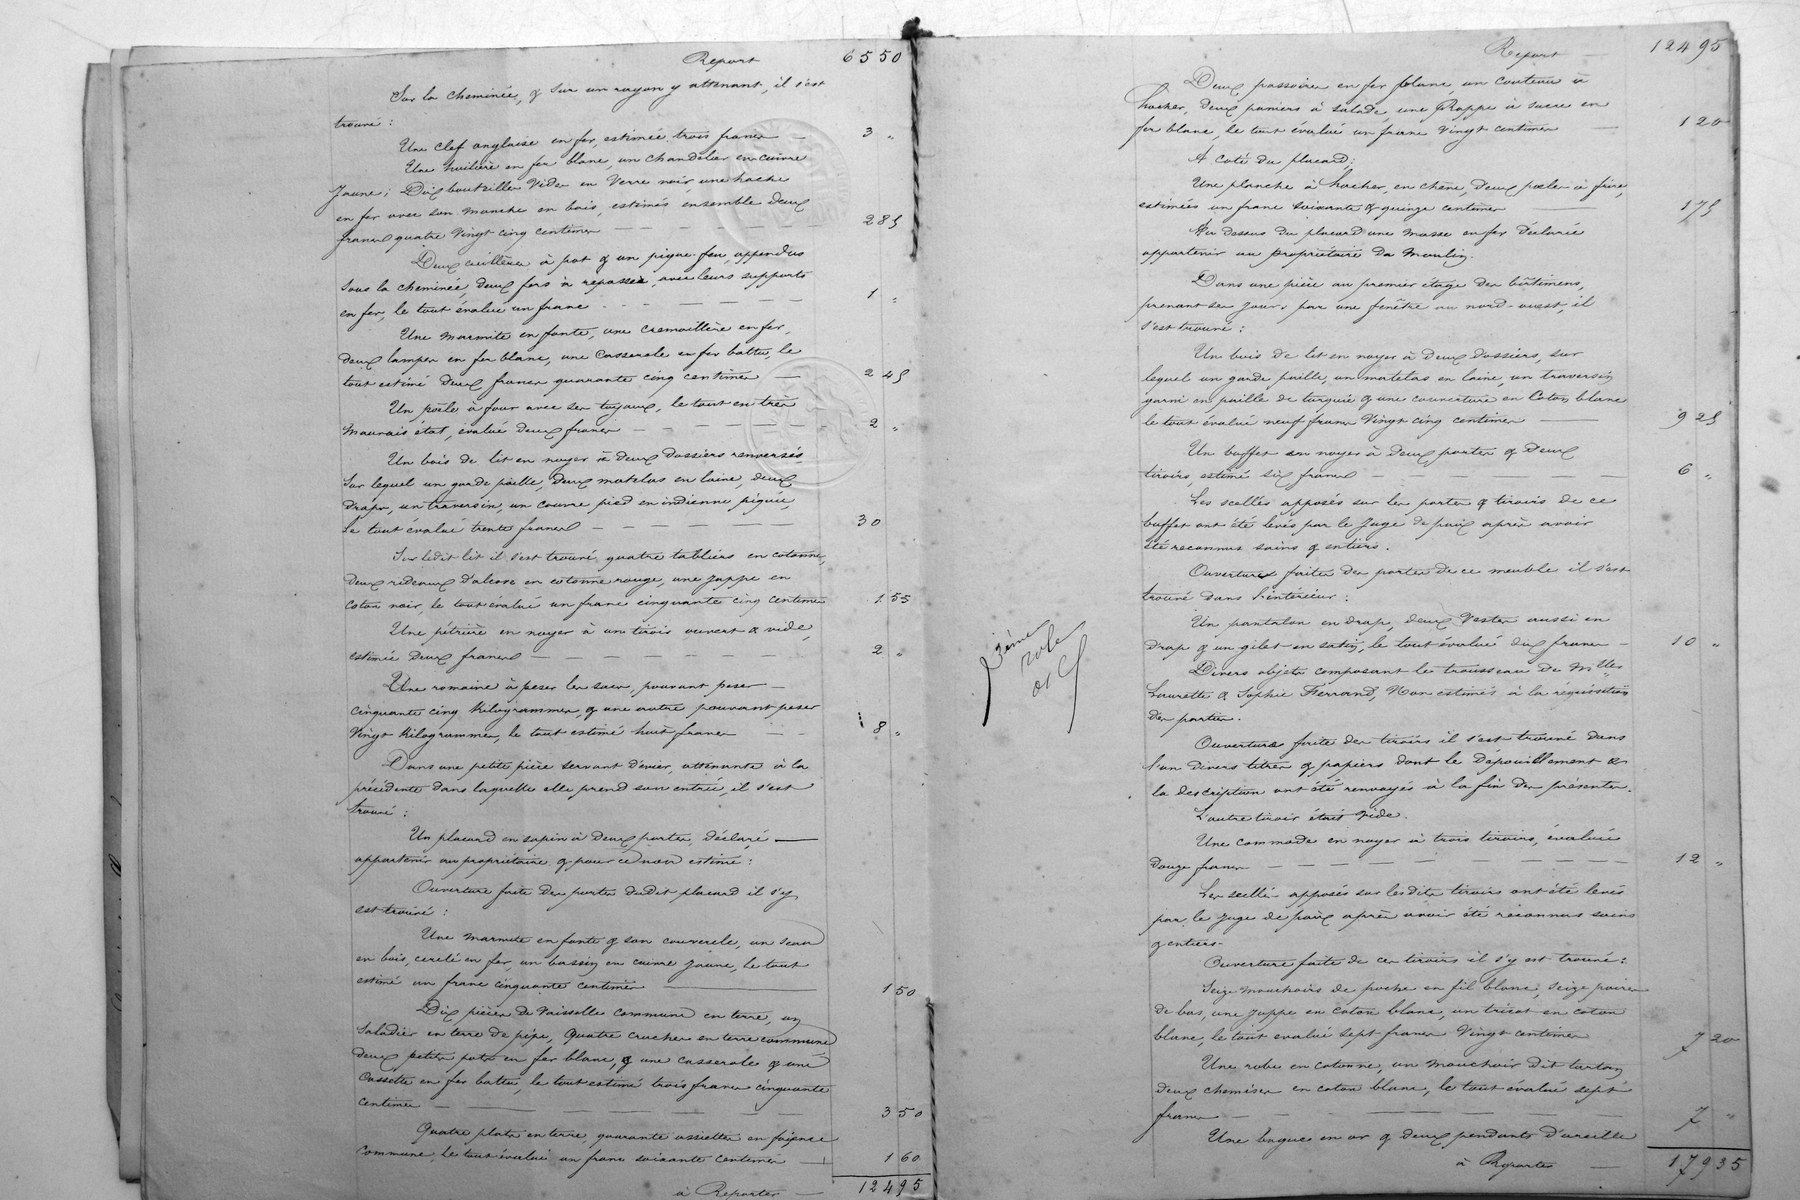 Report 6550
Sur la cheminée, & sur un rayon y attenant, il s'est
trouvé :
Une clef anglaise en fer, estimée trois francs — 3 "
Une huilière en fer blanc, un chandelier en cuivre
jaune ; Dix bouteilles vides en verre noir, une hache
en fer avec son manche en bois, estimés ensemble deux
francs quatre vingt cinq centimes — 2 85
Deux cuillères à pot & un pique-feu, appendus
sous la cheminée, deux fers à repasser, avec leurs supports
en fer, le tout évalué un franc — 1 "
Une marmite en fonte, une cremaillère en fer,
deux lampes en fer blanc, une casserole en fer battu, le
tout estimé deux francs quarante cinq centimes — 2 45
Un poêle à four avec ses tuyaux, le tout en très
mauvais état, évalué deux francs — 2 "
Un bois de lit en noyer à deux dossiers renversés,
sur lequel un garde paille, deux matelas en laine, deux
draps, un traversin, un couvre pied en indienne piquée,
le tout évalué trente francs — 30
Sur ledit lit il s'est trouvé quatre tabliers en cotonne,
deux rideaux d'alcove en cotonne rouge, une juppe en
coton noir, le tout évalué un franc cinquante cinq centimes 1 55
Une pétrière en noyer à un tiroir ouvert & vide,
estimée deux francs — 2 "
Une romaine à peser les sacs, pouvant peser —
cinquante cinq kilogrammes, & une autre pouvant peser
vingt kilogrammes, le tout estimé huit francs — 8 "
Dans une petite pièce servant d'évier, attenante à la
précédente dans laquelle elle prend son entrée, il s'est
trouvé :
Un placard en sapin à deux portes, déclaré —
appartenir au propriétaire & pour ce non estimé :
Ouverture faite des portes dudit placard il s'y
est trouvé :
Une marmite en fonte & son couvercle, un seau
en bois, cerclé en fer, un bassin en cuivre jaune, le tout
estimé un franc cinquante centimes — 1 50
Dix pièces de vaisselles commune en terre, un
saladier en terre de pipe, quatre cruches en terre commune
deux petits pots en fer blanc, & une casserole & une
cassette en fer battu, le tout estimé trois francs cinquante
centimes — 3 50
Quatre plats en terre, quarante assiettes en faïence
commune, le tout évalué un franc soixante centimes — 1 60
à Reporter — 12495
3ème
role
Report 12495
Deux passoires en fer blanc, un couteau à
hacher, deux paniers à salade, une Rappe à sucre en
fer blanc, le tout évalué un franc vingt centimes — 1 20
A coté du placard ;
Une planche à hacher, en chêne, deux poeles à frire,
estimées un franc soixante & quinze centimes — 1 75
Au dessus du placard une masse en fer déclarée
appartenir au propriétaire du Moulin.
Dans une pièce au premier étage des bâtimens,
prenant ses jours par une fenêtre au nord-ouest, il
s'est trouvé :
Un bois de lit en noyer à deux dossiers, sur
lequel un garde paille, un matelas en laine, un traversin
garni en paille de turquie & une couverture en coton blanc
le tout évalué neuf francs vingt cinq centimes — 9 25
Un buffet en noyer à deux portes & deux
tiroirs, estimé six francs — 6 "
Les scellés apposés sur les portes & tiroirs de ce
buffet ont été levés par le Juge de paix après avoir
été reconnus sains & entiers.
Ouverture faites des portes de ce meuble il s'est
trouvé dans l'intérieur :
Un pantalon en drap, deux Vestes aussi en
drap & un gilet en satin, le tout évalué dix francs — 10 "
Divers objets composant le trousseau de Mlles
Laurette & Sophie Ferrand, Non estimés à la réquisition
des parties.
Ouverture faite des tiroirs il s'est trouvé dans
l'un divers titres & papiers dont le dépouillement &
la description ont été renvoyés à la fin des présentes.
L'autre tiroir était vide.
Une commode en noyer à trois tiroirs, évaluée
douze francs — 12 "
Les scellés apposés sur lesdits tiroirs ont été levés
par le Juge de paix après avoir été reconnus sains
& entiers.
Ouverture faite de ces tiroirs il s'y est trouvé :
Seize mouchoirs de poche en fil blanc, seize paires
de bas, une juppe en coton blanc, un tricot en coton
blanc, le tout évalué sept francs vingt centimes 7 20
Une robe en cotonne, un mouchoir dit tartan
deux chemises en coton blanc, le tout évalué sept
francs — 7 "
Une bague en or & deux pendants d'oreille
à Reporter — 17935